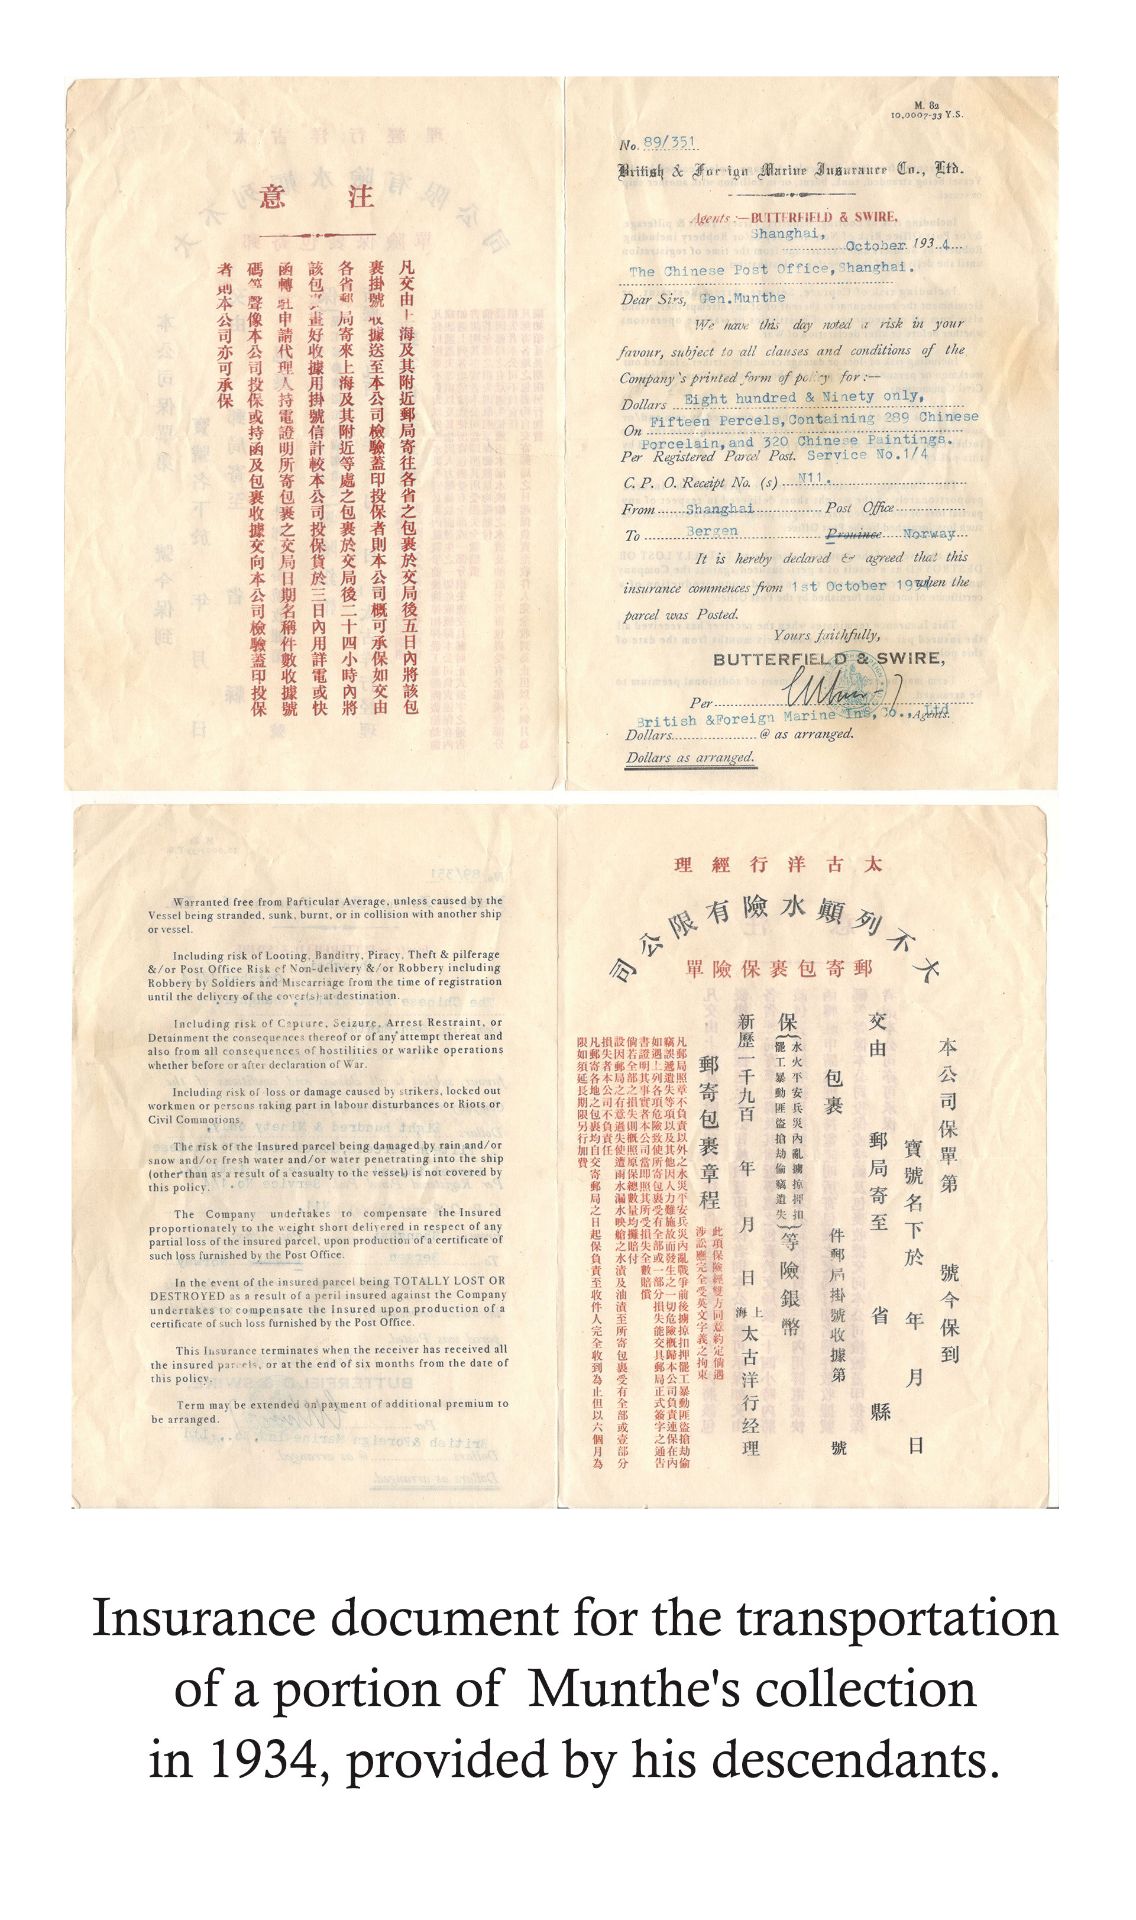 意 注
凡交由上海及其附近郵局寄往各省之包裹於交局後五日內將該包
裹掛號收據送至本公司檢驗蓋印投保者則本公司概可承保如交由
各省郵局寄來上海及其附近等處之包裹於交局後二十四小時內將
該包裹畫好收據用掛號信計較本公司投保貨於三日內用詳電或快
函轉駐申請代理人持電證明所寄包裹之交局日期名稱件數收據號
碼等聲像本公司投保或持函及包裹收據交向本公司檢驗蓋印投保
者則本公司亦可承保
M. 82
10,0007-33 Y.S.
No. 89/351.
British & Foreign Marine Insurance Co., Ltd.
Agents:—BUTTERFIELD & SWIRE,
Shanghai,
October 1934
The Chinese Post Office, Shanghai.
Dear Sirs, Gen.Munthe
We have this day noted a risk in your
favour, subject to all clauses and conditions of the
Company's printed form of policy for:—
Dollars Eight hundred & Ninety only,
On Fifteen Percels,Containing 289 Chinese
Porcelain,and 320 Chinese Paintings.
Per Registered Parcel Post. Service No.1/4
C. P. O. Receipt No. (s) N11.
From Shanghai Post Office
To Bergen Province Norway
It is hereby declared & agreed that this
insurance commences from 1st October 1934 when the
parcel was Posted.
Yours faithfully,
BUTTERFIELD & SWIRE,
Per
British &Foreign Marine Ins,Co.,Ltd Agents.
Dollars @ as arranged.
Dollars as arranged.
Warranted free from Particular Average, unless caused by the
Vessel being stranded, sunk, burnt, or in collision with another ship
or vessel.
Including risk of Looting, Banditry, Piracy, Theft & pilferage
&/or Post Office Risk of Non-delivery &/or Robbery including
Robbery by Soldiers and Miscarriage from the time of registration
until the delivery of the cover(s) at destination.
Including risk of Capture, Seizure, Arrest Restraint, or
Detainment the consequences thereof or of any attempt thereat and
also from all consequences of hostilities or warlike operations
whether before or after declaration of War.
Including risk of loss or damage caused by strikers, locked out
workmen or persons taking part in labour disturbances or Riots or
Civil Commotions.
The risk of the Insured parcel being damaged by rain and/or
snow and/or fresh water and/or water penetrating into the ship
(other than as a result of a casualty to the vessel) is not covered by
this policy.
The Company undertakes to compensate the Insured
proportionately to the weight short delivered in respect of any
partial loss of the insured parcel, upon production of a certificate of
such loss furnished by the Post Office.
In the event of the insured parcel being TOTALLY LOST OR
DESTROYED as a result of a peril insured against the Company
undertakes to compensate the Insured upon production of a
certificate of such loss furnished by the Post Office.
This Insurance terminates when the receiver has received all
the insured parcels, or at the end of six months from the date of
this policy.
Term may be extended on payment of additional premium to
be arranged.
理經行洋古太
司公限有險水顚列不大
單險保裹包寄郵
本公司保單第 號今保到
寶號名下於 年 月 日
交由 郵局寄至 省 縣
包裹 件郵局掛號收據第 號
保 水火平安兵災內亂擄掠押扣
罷工暴動匪盜搶劫偷竊遺失 等險銀幣
新歷一千九百 年 月 日 上海太古洋行经理
郵寄包裹章程 此項保險經雙方同意約定倘遇
涉訟應完全受英文字義之拘束
凡郵局照章不負責以外之水災平安兵災內亂戰爭前後擄掠扣押罷工暴動匪盜搶劫偷
竊誤遞遺失等項以及其他因人力難施故而發生之一切危險概歸本公司負責連保在內
如遇上列各項危險致使所寄包裹受有全部或一部分損失能交具郵局正式簽字之通告
書證明其事實者本公司當即照其所受損失全數賠償
倘若全部之損失則概照原保總數量均攤賠付
設因郵局之有意過失使遭雨水漏水映艙之水漬及油漬至所寄包裹受有全部或壹部分
損失者本公司不負責任
凡郵寄各地之包裹均自交寄郵局之日起保負責至收件人完全收到為止但以六個月為
限如須延長期限另行加費
Insurance document for the transportation
of a portion of Munthe's collection
in 1934, provided by his descendants.